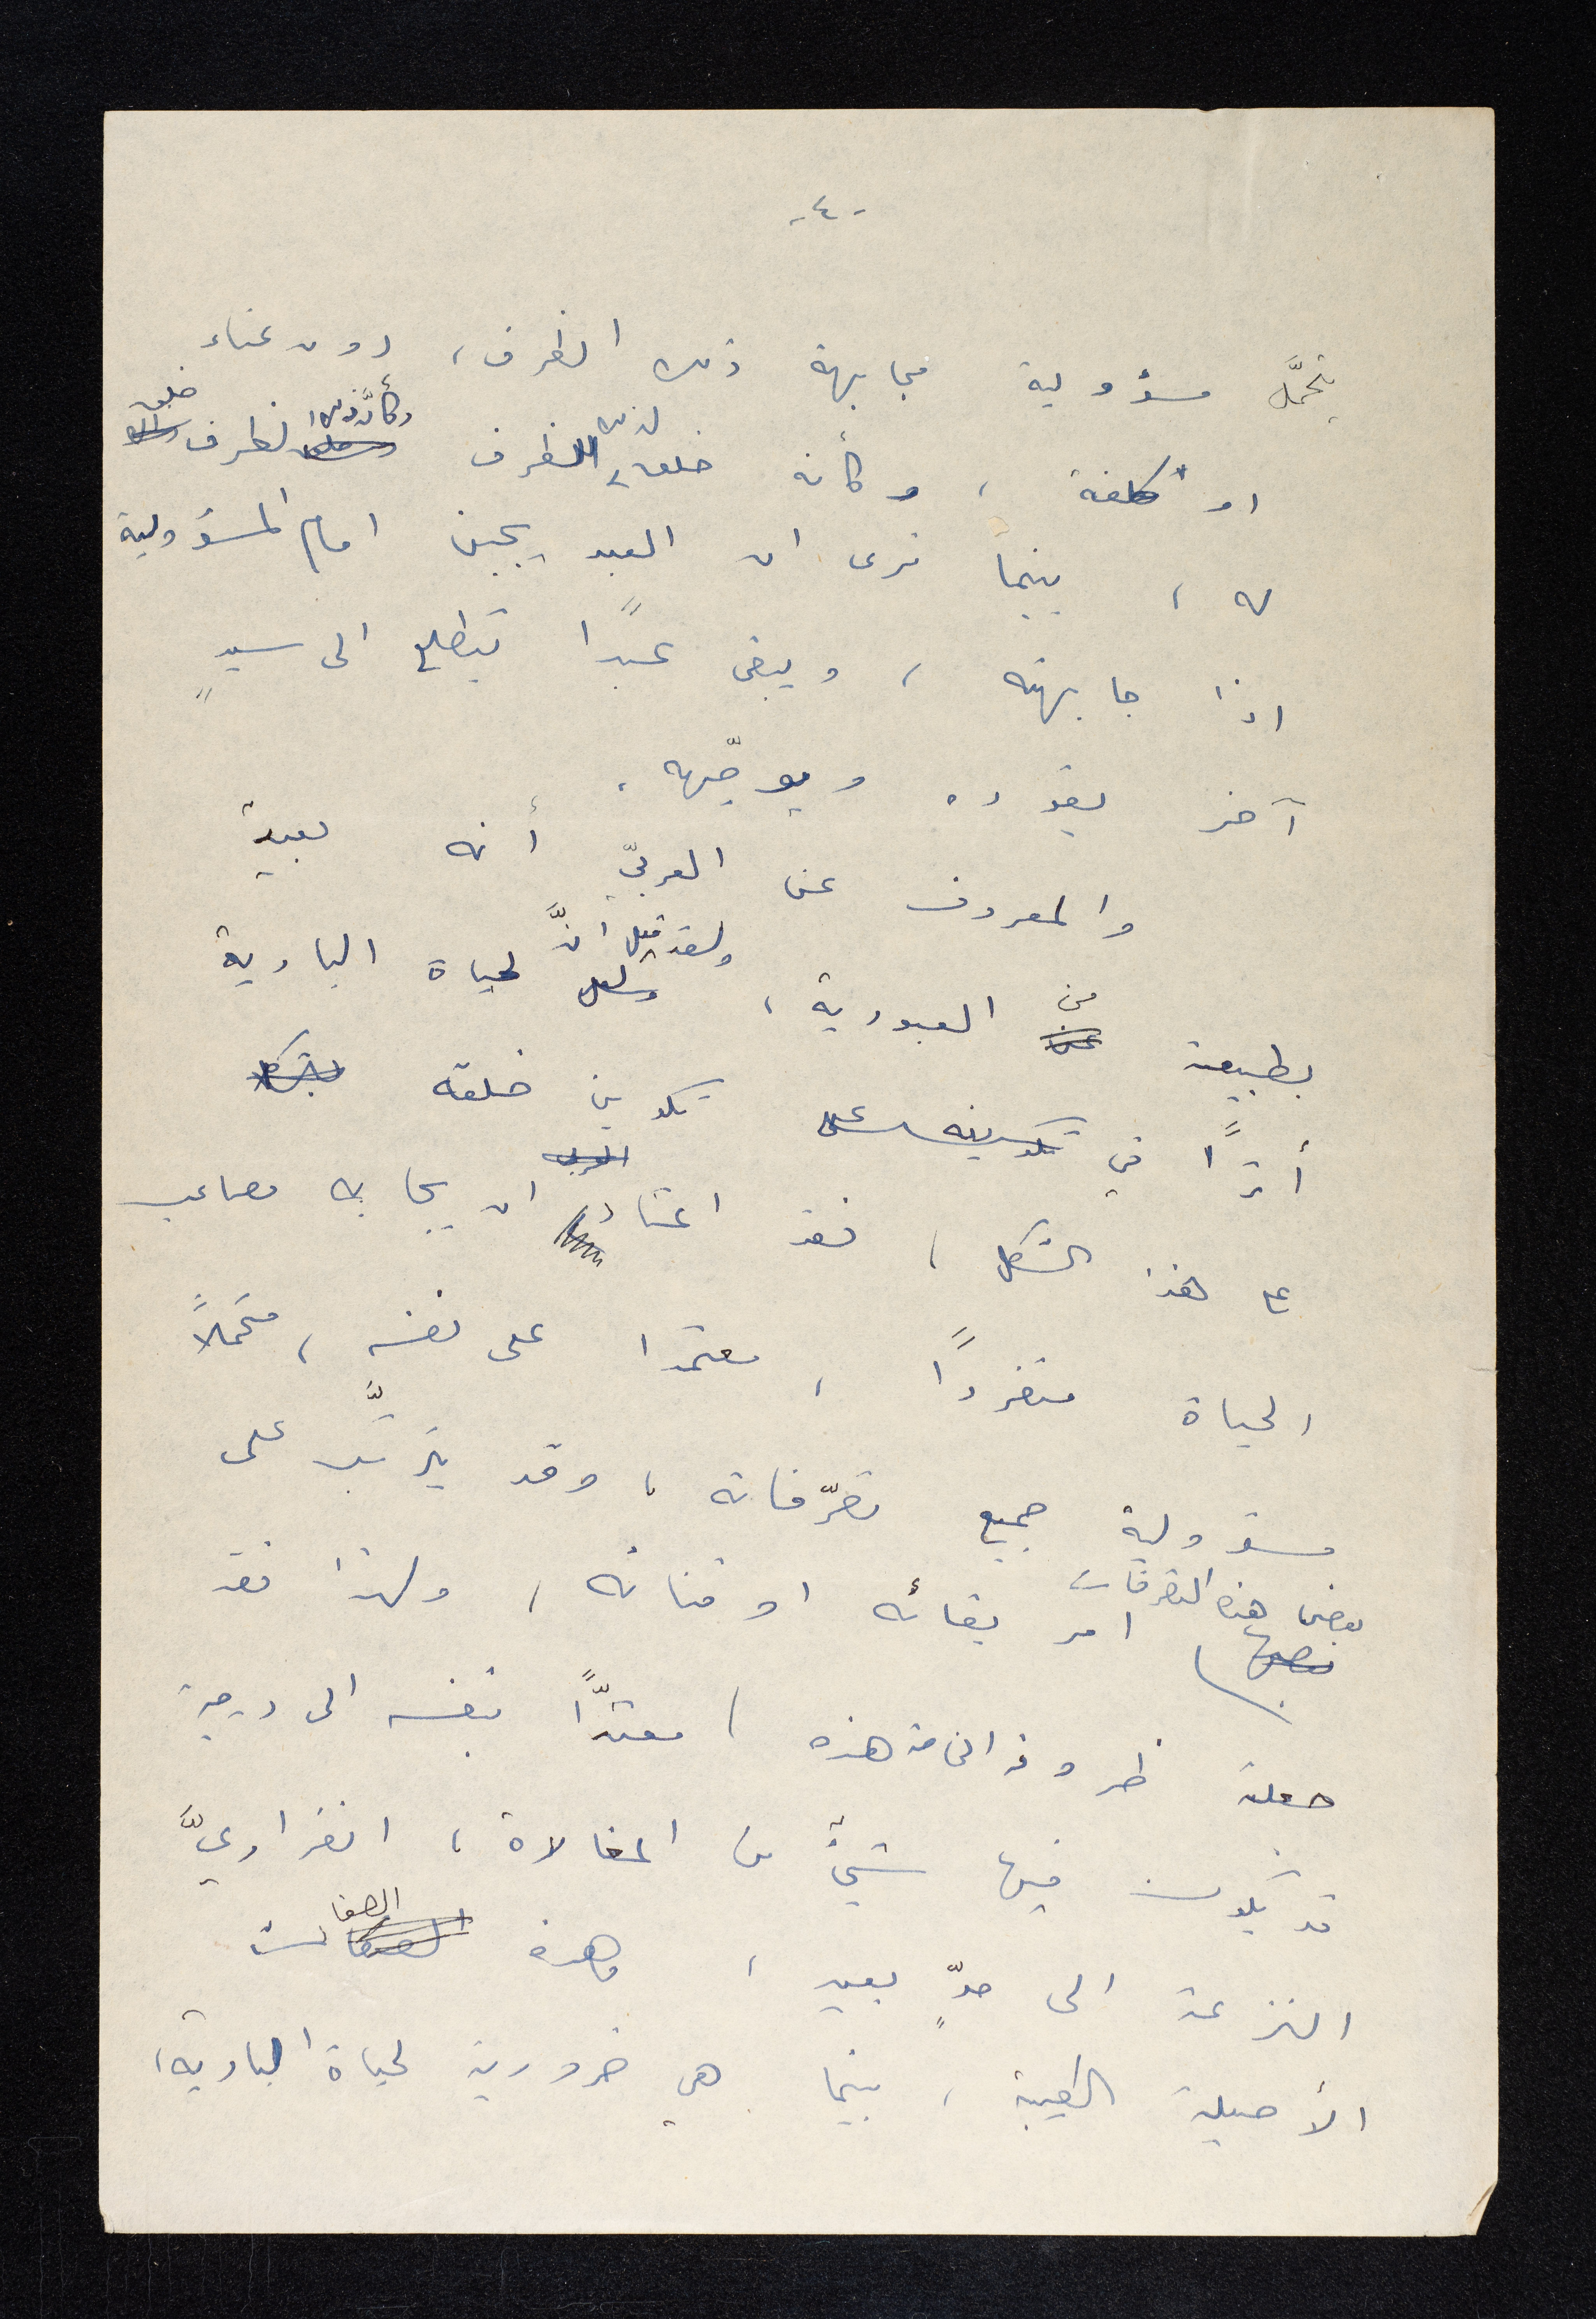 -٤-
يتحمَّل مسؤولية مجابهة ذلك الظرف، دون عناء
او كلفة، وكأنه خلق لذلك الظرف وكأنَّ ذلك الظرف خلق
له، بينما نرى ان العبد يجبن امام المسؤولية
اذا جابهته، ويبقى عبدًا يتطلع الى سيدٍ
آخر يقوده ويوجّهه.
والمعروف عن العربيّ أنه بعيد
بطبيعته من العبودية، ولقد قيل انَّ لحياة البادية
أثرًا في تكوين خلقه
على هذا الشكل، فقد اعتاد ان يجابه مصاعب
الحياة منفردًا، معتمدا على نفسه، متحملاً
مسؤولية جميع تصرّفاته، وقد يترتَّب على
بعض هذه التصرفات امر بقائه او فنائه، ولهذا فقد
جعلته ظروفه الخاصة هذه، معتدًّا بنفسه الى درجة
قد يكون فيها شيءٌ من المغالاة، انفراديَّ
النزعة الى حدٍّ بعيد، وهذه الصفات
الأصيلة الطيبة، بينما هي ضرورية لحياة البادية،